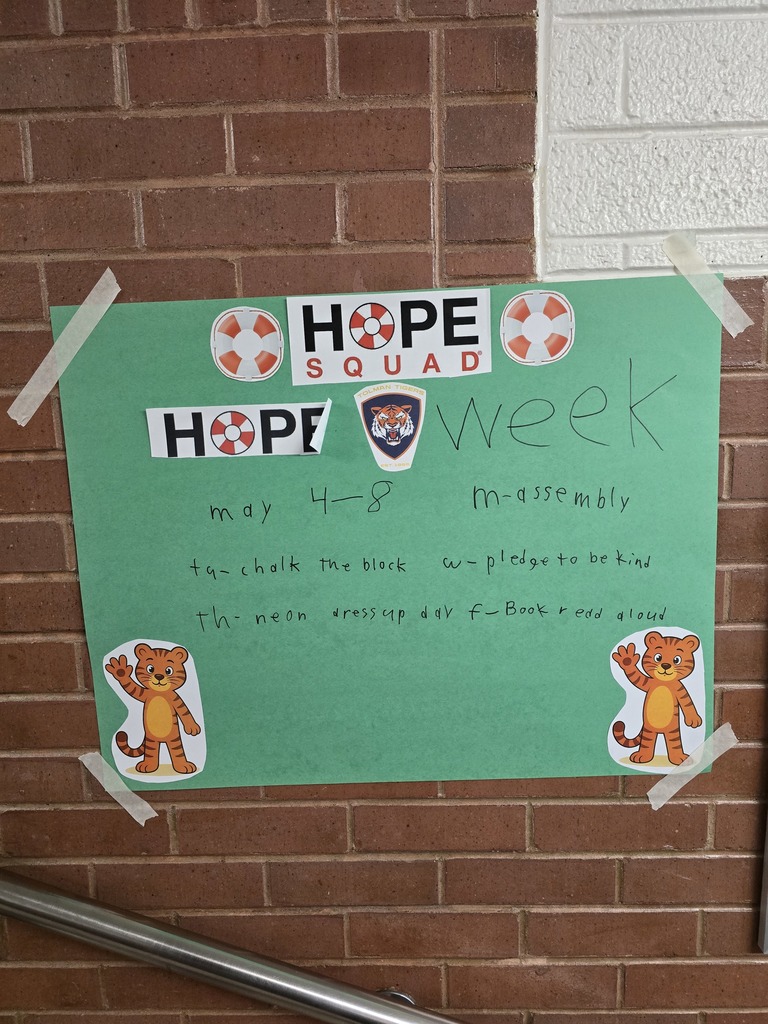 HOPE
SQUAD
HOPE
TOLMAN TIGERS
week
may 4-8 m-assembly
tu- chalk the block w- pledge to be kind
th- neon dress up day f- Book read aloud